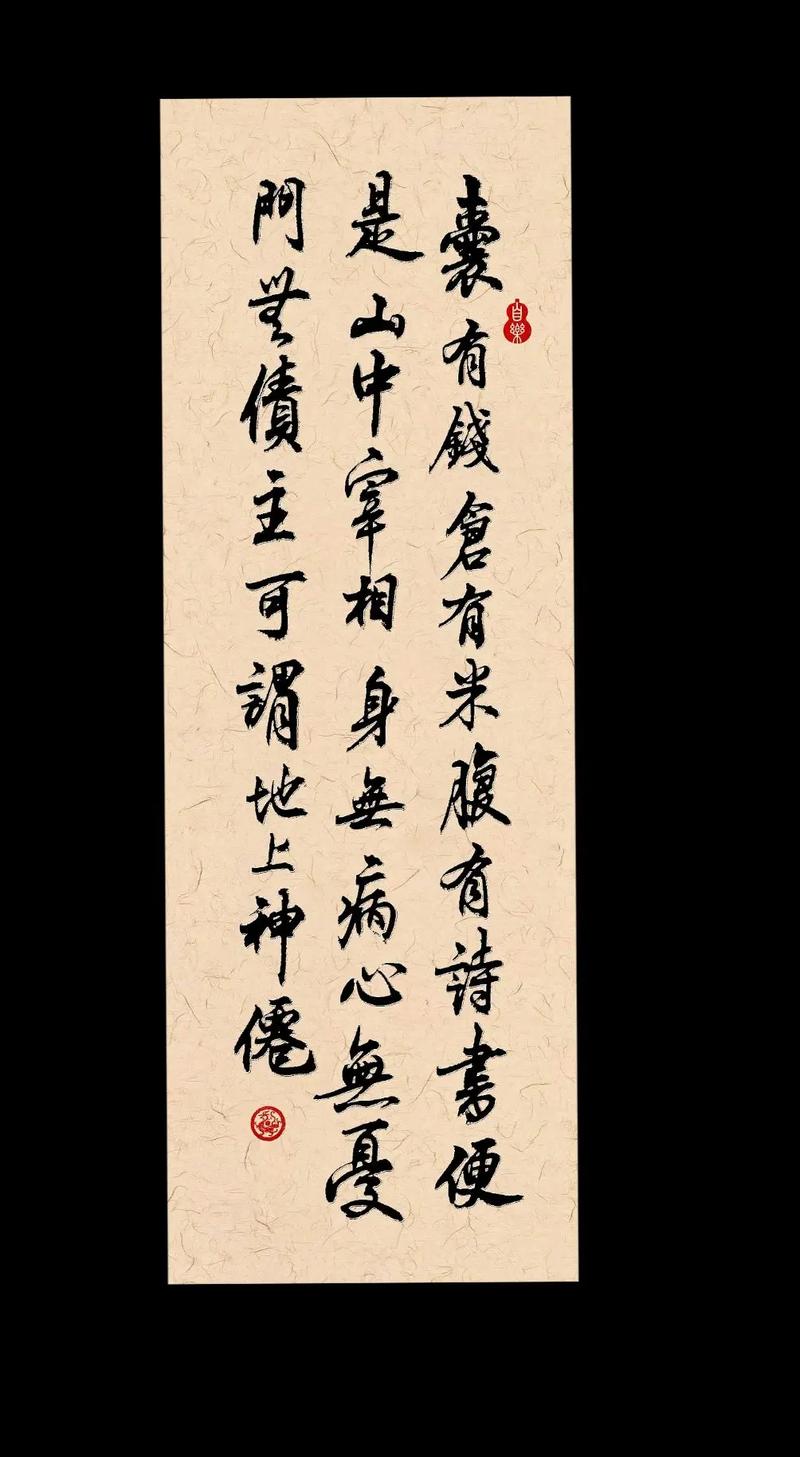 囊有錢倉有米腹有詩書便
是山中宰相身無病心無憂
門無債主可謂地上神僊
自樂